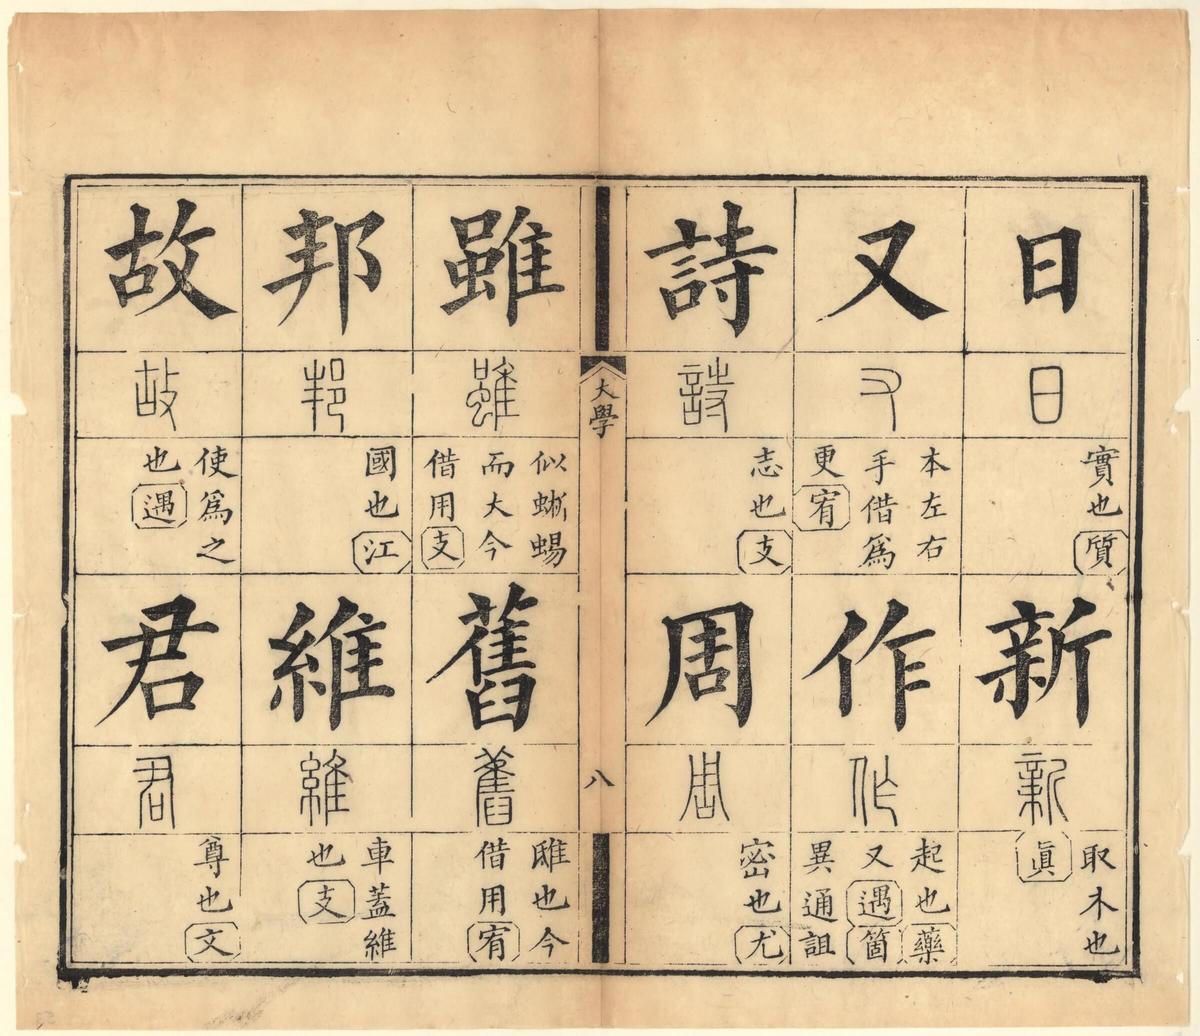 日
日
實也質
新
新
取木也
眞
又
又
本左右
手借爲
更宥
作
作
起也藥
又遇箇
異通詛
詩
詩
志也支
周
周
密也尤
大學
八
雖
雖
似蜥蜴
而大今
借用支
舊
舊
也今
借用宥
邦
邦
國也江
維
維
車蓋維
也支
故
故
使爲之
也遇
君
君
尊也文